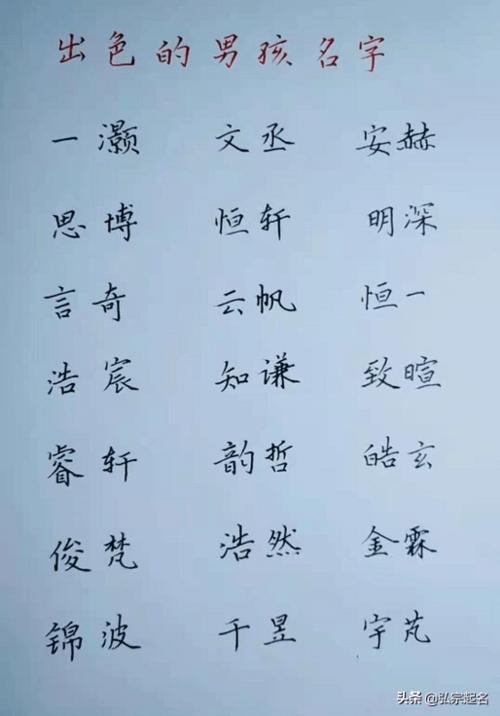 出色的男孩名字
一灏 文丞 安赫
思博 恒轩 明深
言奇 云帆 恒一
浩宸 知谦 致暄
睿轩 韵哲 皓玄
俊梵 浩然 金霖
锦波 千昱 宇芃
头条 @弘宗起名